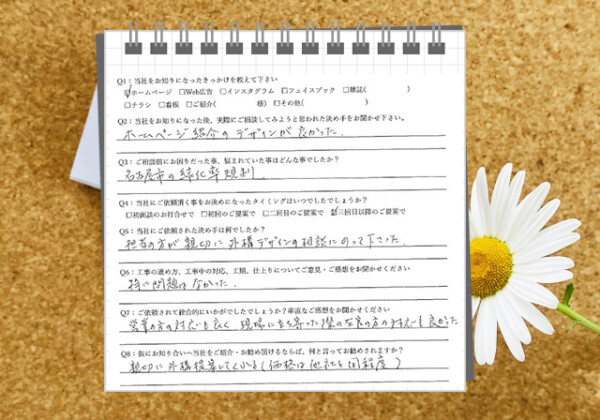 Q1：当社をお知りになったきっかけを教えて下さい
☑ホームページ □Web広告 □インスタグラム □フェイスブック □雑誌( )
□チラシ □看板 □ご紹介( 様) □その他( )
Q2：当社をお知りになった後、実際にご相談してみようと思われた決め手をお聞かせ下さい。
ホームページ紹介のデザインが良かった。
Q3：ご相談前にお困りだった事、悩まれていた事はどんな事でしたか？
名古屋市の緑化率規制。
Q4：当社にご依頼頂く事をお決めになったタイミングはいつでしたでしょうか？
□初面談のお打合せで □初回のご提案で □二回目のご提案で ☑三回目以降のご提案で
Q5：当社にご依頼された決め手は何でしたか？
担当の方が親切に外構デザインの相談にのって下さった。
Q6：工事の進め方、工事中の対応、工期、仕上りについてご意見・ご感想をお聞かせください
特に問題はなかった。
Q7：ご依頼されて総合的にいかがでしたでしょうか？率直なご感想をお聞かせください
営業の方の対応も良く 現場に立ち寄った際の方の対応も良かった
Q8：仮にお知り合いへ当社をご紹介・お勧め頂けるならば、何と言ってお勧めされますか？
親切に外構提案してくれる(価格は他社と同程度)